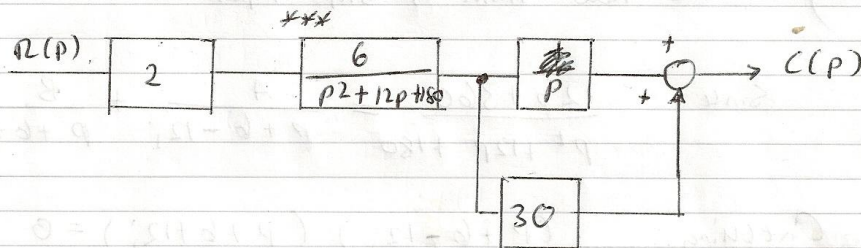 ***
R(p)
2
6
p2 + 12p + 180
p
+
+
C(p)
30